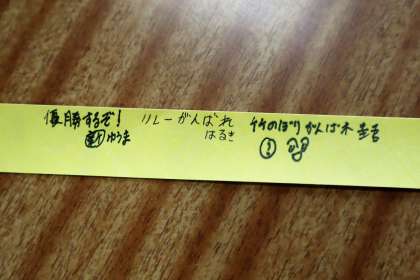 優勝するぞ!
ゆうま
リレーがんばれ
はるき
竹のぼりがんばれ